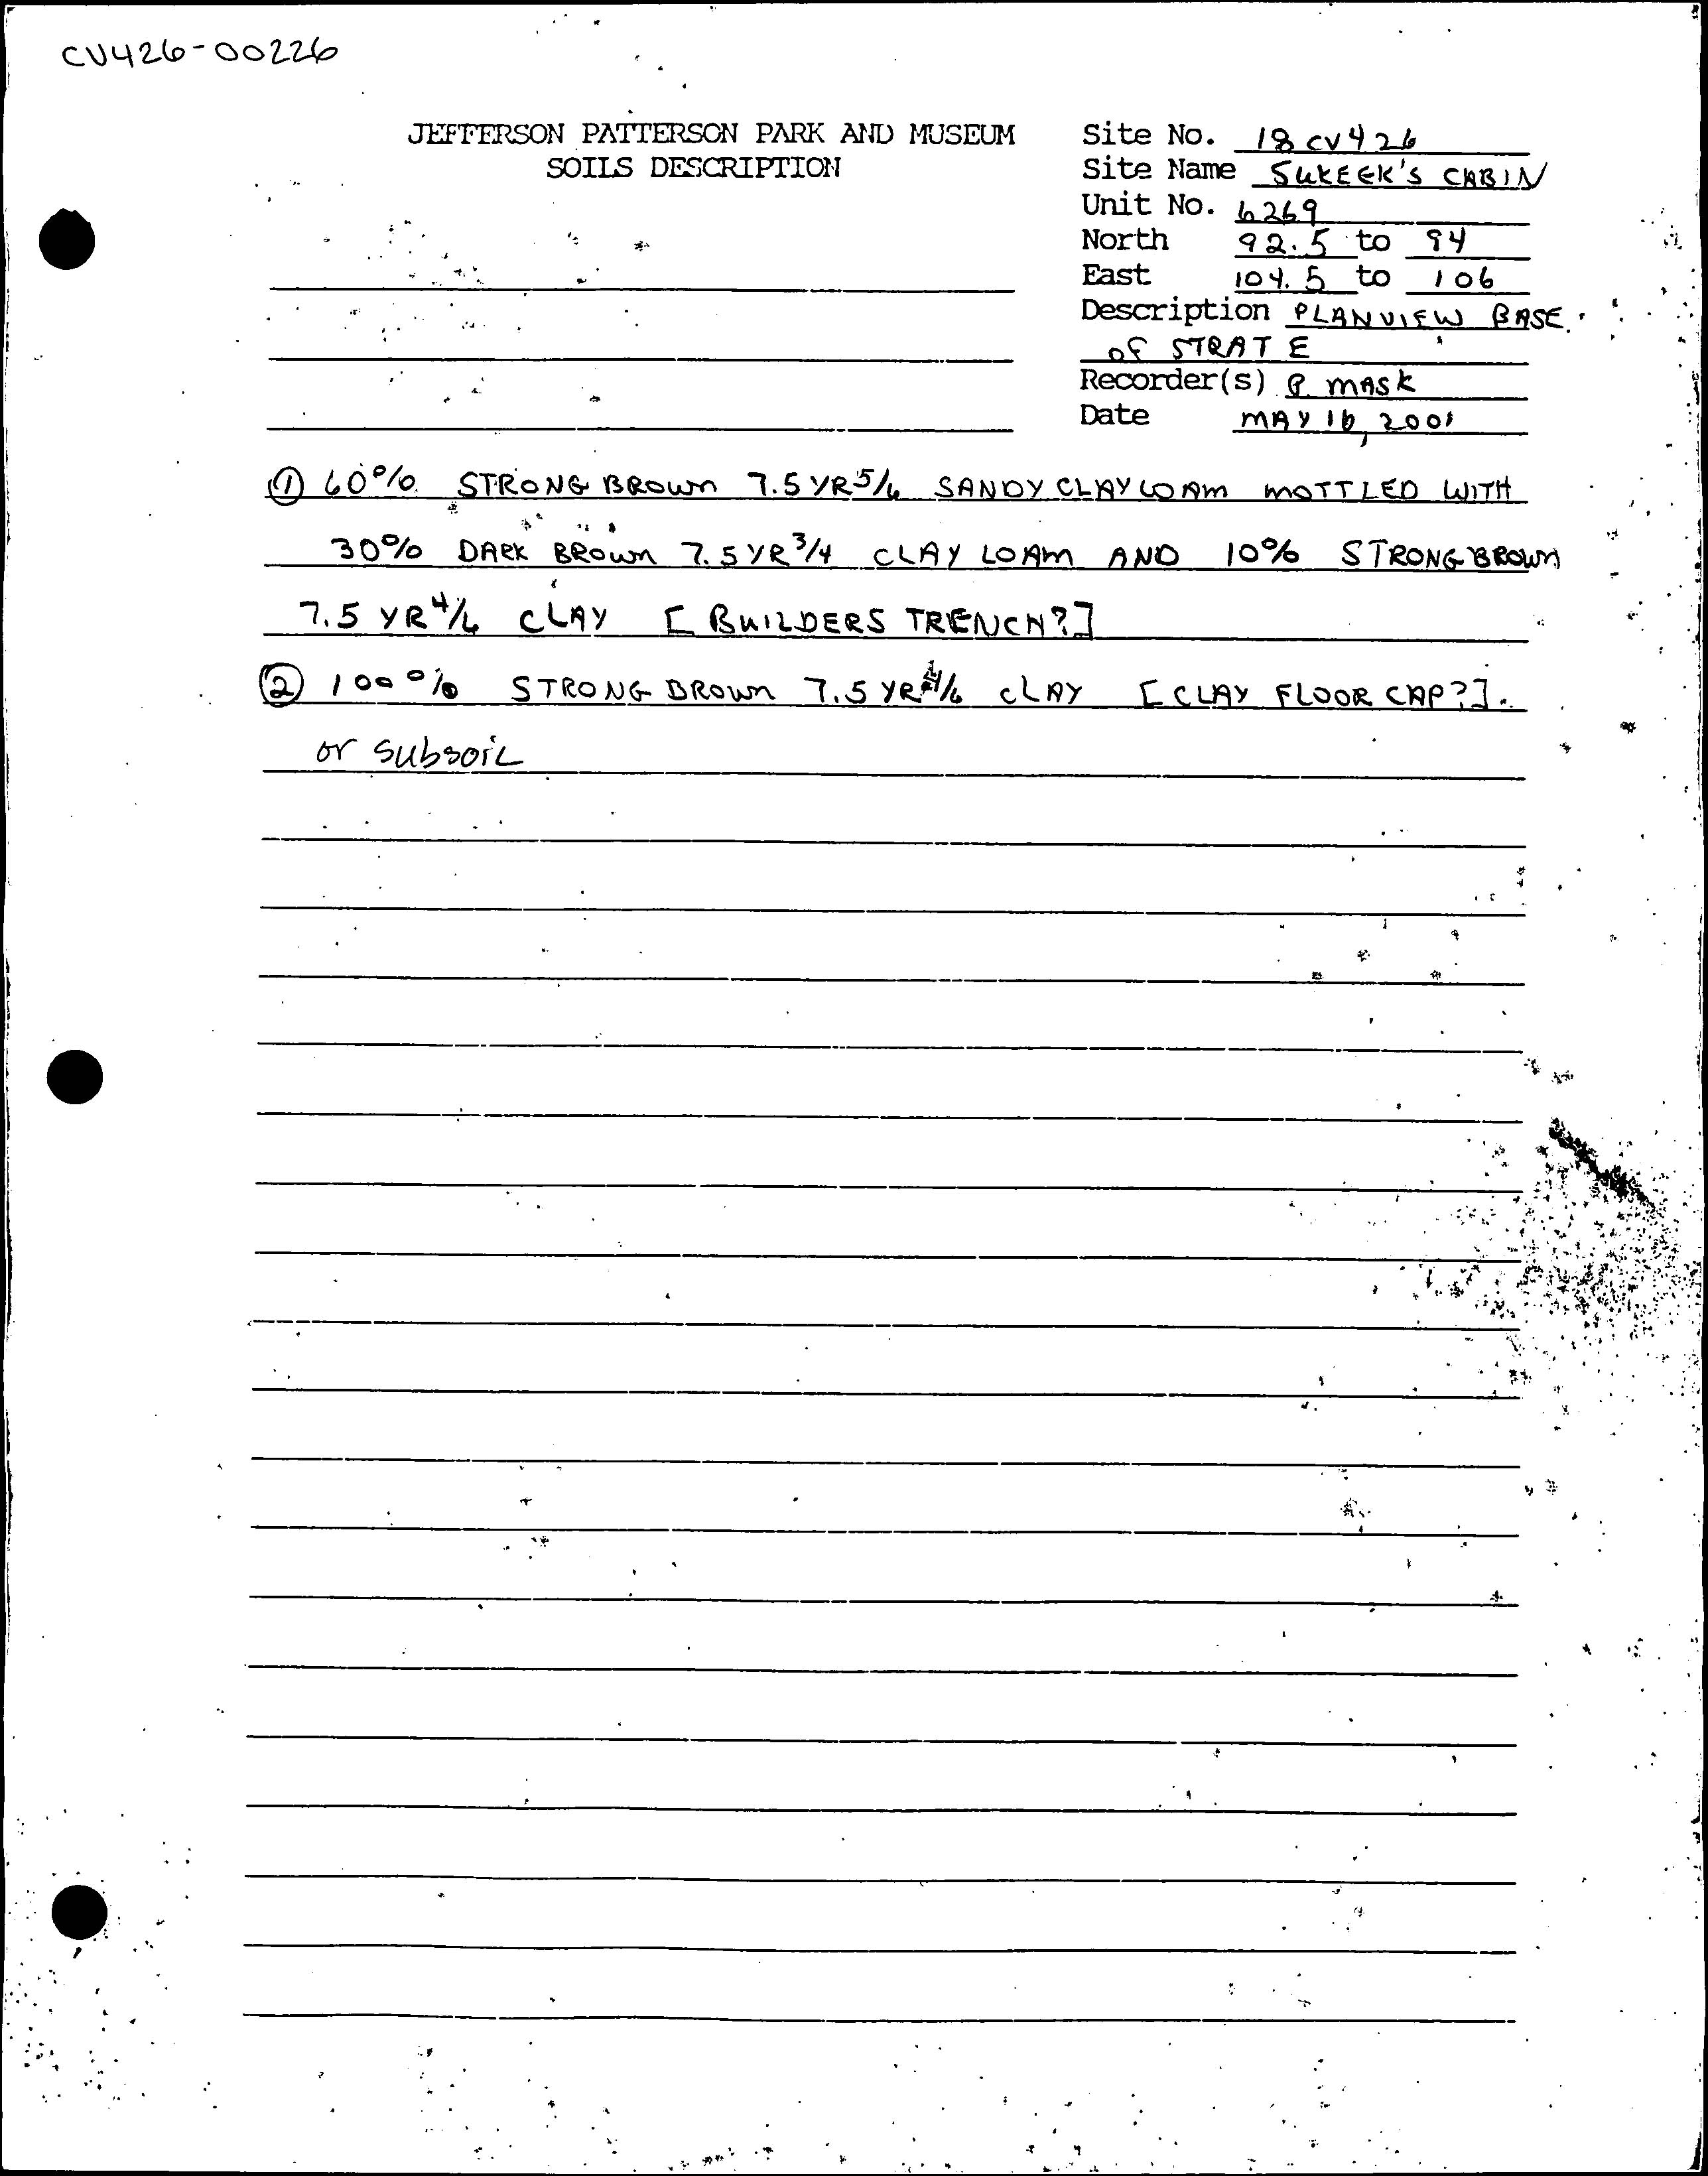 CV426-00226
JEFFERSON PATTERSON PARK AND MUSEUM
SOILS DESCRIPTION
Site No. 18 CV 426
Site Name SUKEEK'S CABIN
Unit No. 6269
North 92.5 to 94
East 104.5 to 106
Description PLANVIEW BASE
OF STRAT E
Recorder(s) P. MASK
Date MAY 16, 2001
① 60% STRONG BROWN 7.5 YR 5/6 SANDY CLAY LOAM MOTTLED WITH
30% DARK BROWN 7.5 YR 3/4 CLAY LOAM AND 10% STRONG BROWN
7.5 YR 4/6 CLAY [BUILDERS TRENCH?]
② 100% STRONG BROWN 7.5 YR CLAY [CLAY FLOOR CAP?].
or subsoil